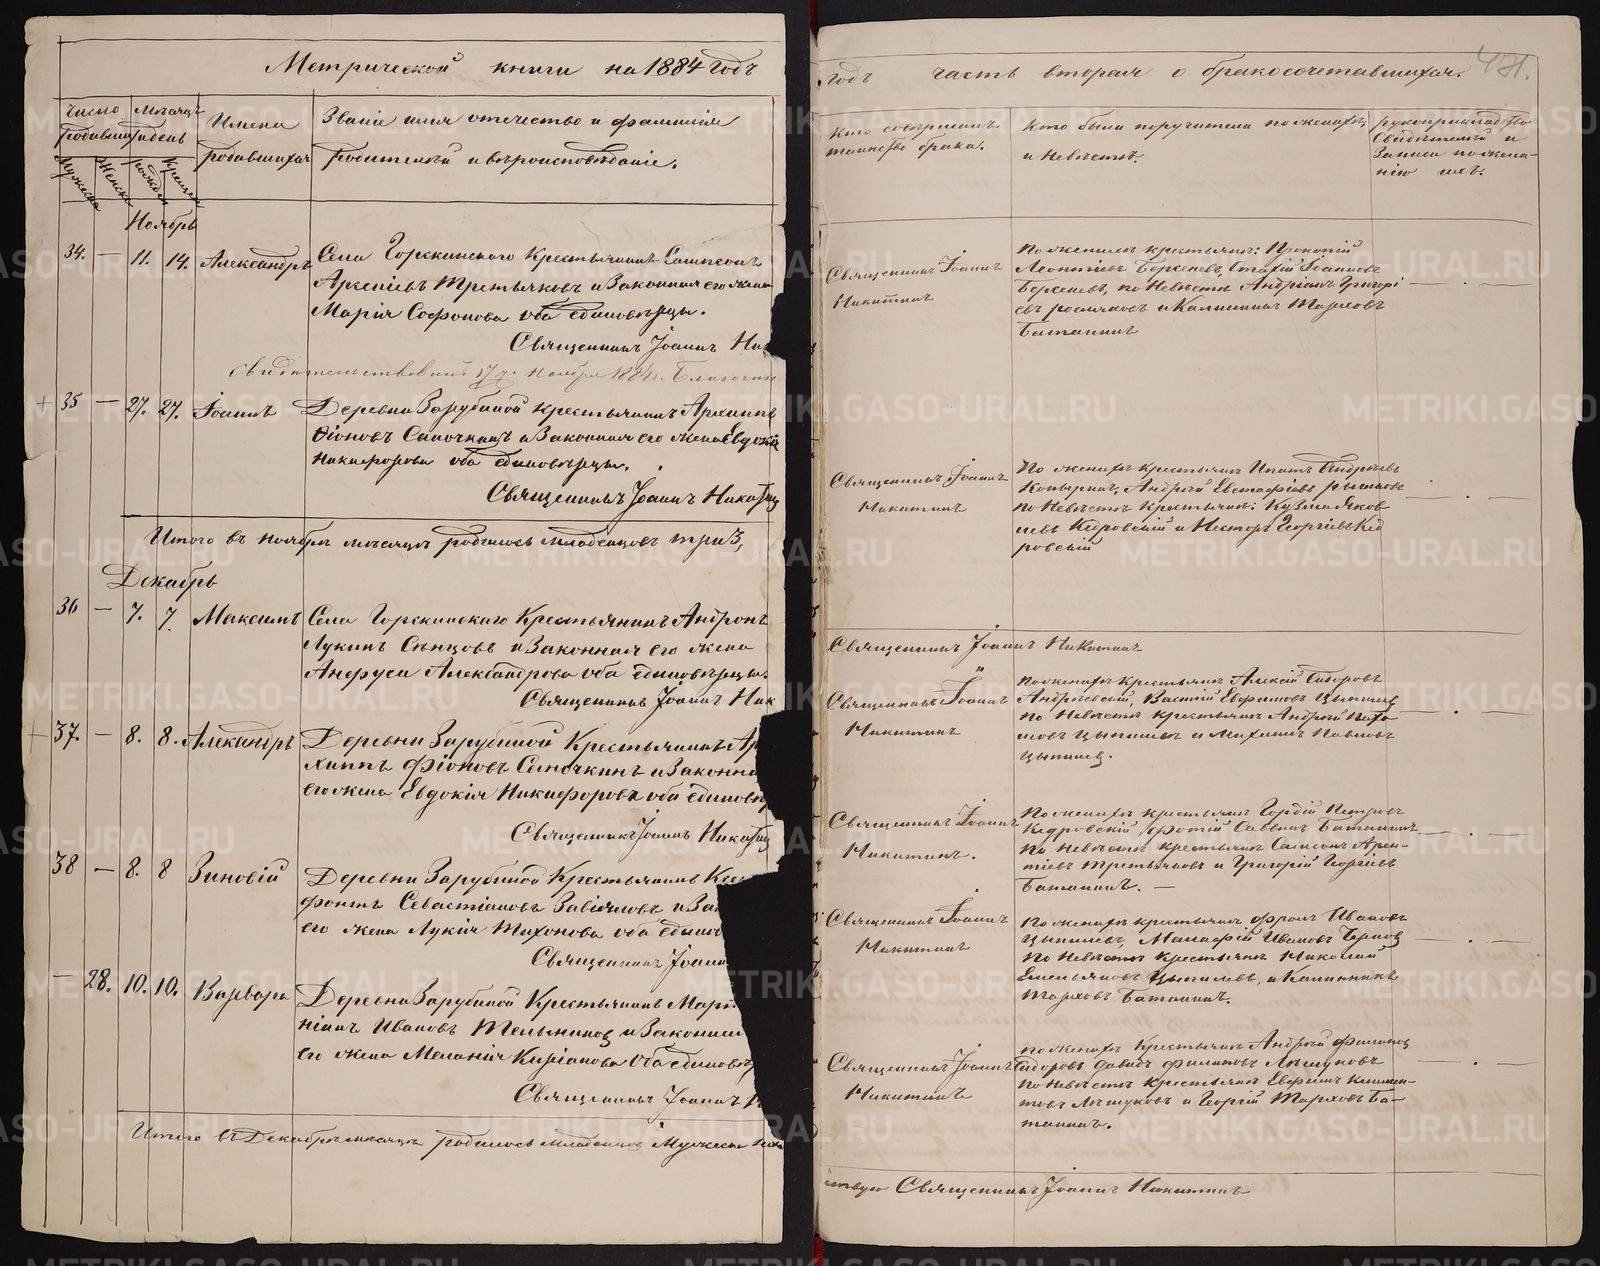 Метрической книги на 1884 годъ
Число родивших
Мѣсяцъ и день
Имена родившихся
Званіе имя отечество и фамилія
родителей и вѣроисповѣданіе.
Мужеска
Женска
рожден
Крещен
Ноябрь
34. — 11. 14. Александръ
Села Горскинского Крестьянинъ Сампсонъ
Арсеніевъ Третьяковъ и Законная его жена
Марія Софонова оба единовѣрцы.
Священникъ Іоаннъ Ни
Свидѣтельствовалъ Ноября 1884 г. Благочин
+ 35 — 27. 27. Іоаннъ
Деревни Зарубиной крестьянинъ Архиппъ
Фіоновъ Сапочкинъ и Законная его жена Евдокія
Никифорова оба единовѣрцы.
Священникъ Іоаннъ Никитин
Итого въ ноябрѣ мѣсяцѣ родилось младенцовъ три 3,
Декабрь
36 — 7. 7. Максимъ
Села Горскинского Крестьянинъ Андронъ
Лукинъ Сѣнцовъ и Законная его жена
Анфуса Александрова оба единовѣрцы.
Священникъ Іоаннъ Ник
37. — 8. 8. Александръ
Деревни Зарубиной Крестьянинъ Ар
хиппъ Фіоновъ Сапочкинъ и Законна
его жена Евдокія Никифорова оба единовѣ
Священникъ Іоаннъ Никитин
38 — 8. 8 Зиновій
Деревни Зарубиной Крестьянинъ
фонтъ Севастіановъ и За
его жена Лукія Тихонова оба едино
Священникъ Іоанн
— 28. 10. 10. Варвара
Деревни Зарубиной Крестьянинъ Март
ніанъ Ивановъ Мельников и Законна
его жена Меланія Киріанова оба единовѣ
Священникъ Іоаннъ
Итого въ Декабрѣ мѣсяцѣ родилось младенцовъ Мужеска
годъ часть вторая о бракосочетавшихся. 481.
Кто совершалъ
таинство брака.
Кто были поручители по женихѣ
и невѣстѣ.
рукоприкладство
Свидѣтелей и
Записи по жела-
нію ихъ.
Священникъ Іоаннъ
Никитинъ
По женихѣ крестьяне: Прокопій
Леонтіевъ Берсеневъ,
Берсеневъ, по Невѣстѣ Андріанъ Григорі
евъ и Калинникъ Тарховъ
Батанинъ
Священникъ Іоаннъ
Никитинъ
По женихѣ крестьяне Ипатъ Андреевъ
Копыринъ, Андрей Евстафіевъ
по Невѣстѣ Крестьяне: Кузма Яков
левъ Кедровскій и Несторъ Георгіевъ Кед
ровскій
Священникъ Іоаннъ Никитинъ
Священникъ Іоаннъ
Никитинъ
по женихѣ крестьяне Алексѣй Сидоровъ
Андреевскій, Василій Ефимовъ Цыпилев
по Невѣстѣ крестьяне Андрей
Цыпилевъ и Михаилъ Павловъ
Цыпилев.
Священникъ Іоаннъ
Никитинъ.
По женихѣ крестьяне Гордій Петровъ
Кедровскій Фотій Савинъ Батанинъ
По Невѣстѣ крестьяне Сампсонъ Арсен-
тіевъ Третьяковъ и Григорій Георгіевъ
Батанинъ. —
Священникъ Іоаннъ
Никитинъ
По женихѣ крестьяне Фролъ Ивановъ
Цыпилевъ, Ивановъ
По Невѣстѣ Крестьяне Николай
Емельяновъ Цыпилевъ, и Калинникъ
Тарховъ Батанинъ.
Священникъ Іоаннъ
Никитинъ
по женихѣ Крестьяне Андрей
Сидоровъ Давидъ Филиповъ Лямуковъ
По Невѣстѣ Крестьяне Ефремъ Климен-
товъ Лямуковъ и Георгій Тарховъ Ба-
танинъ.
Священникъ Іоаннъ Никитинъ
METRIKI.GASO-URAL.RU